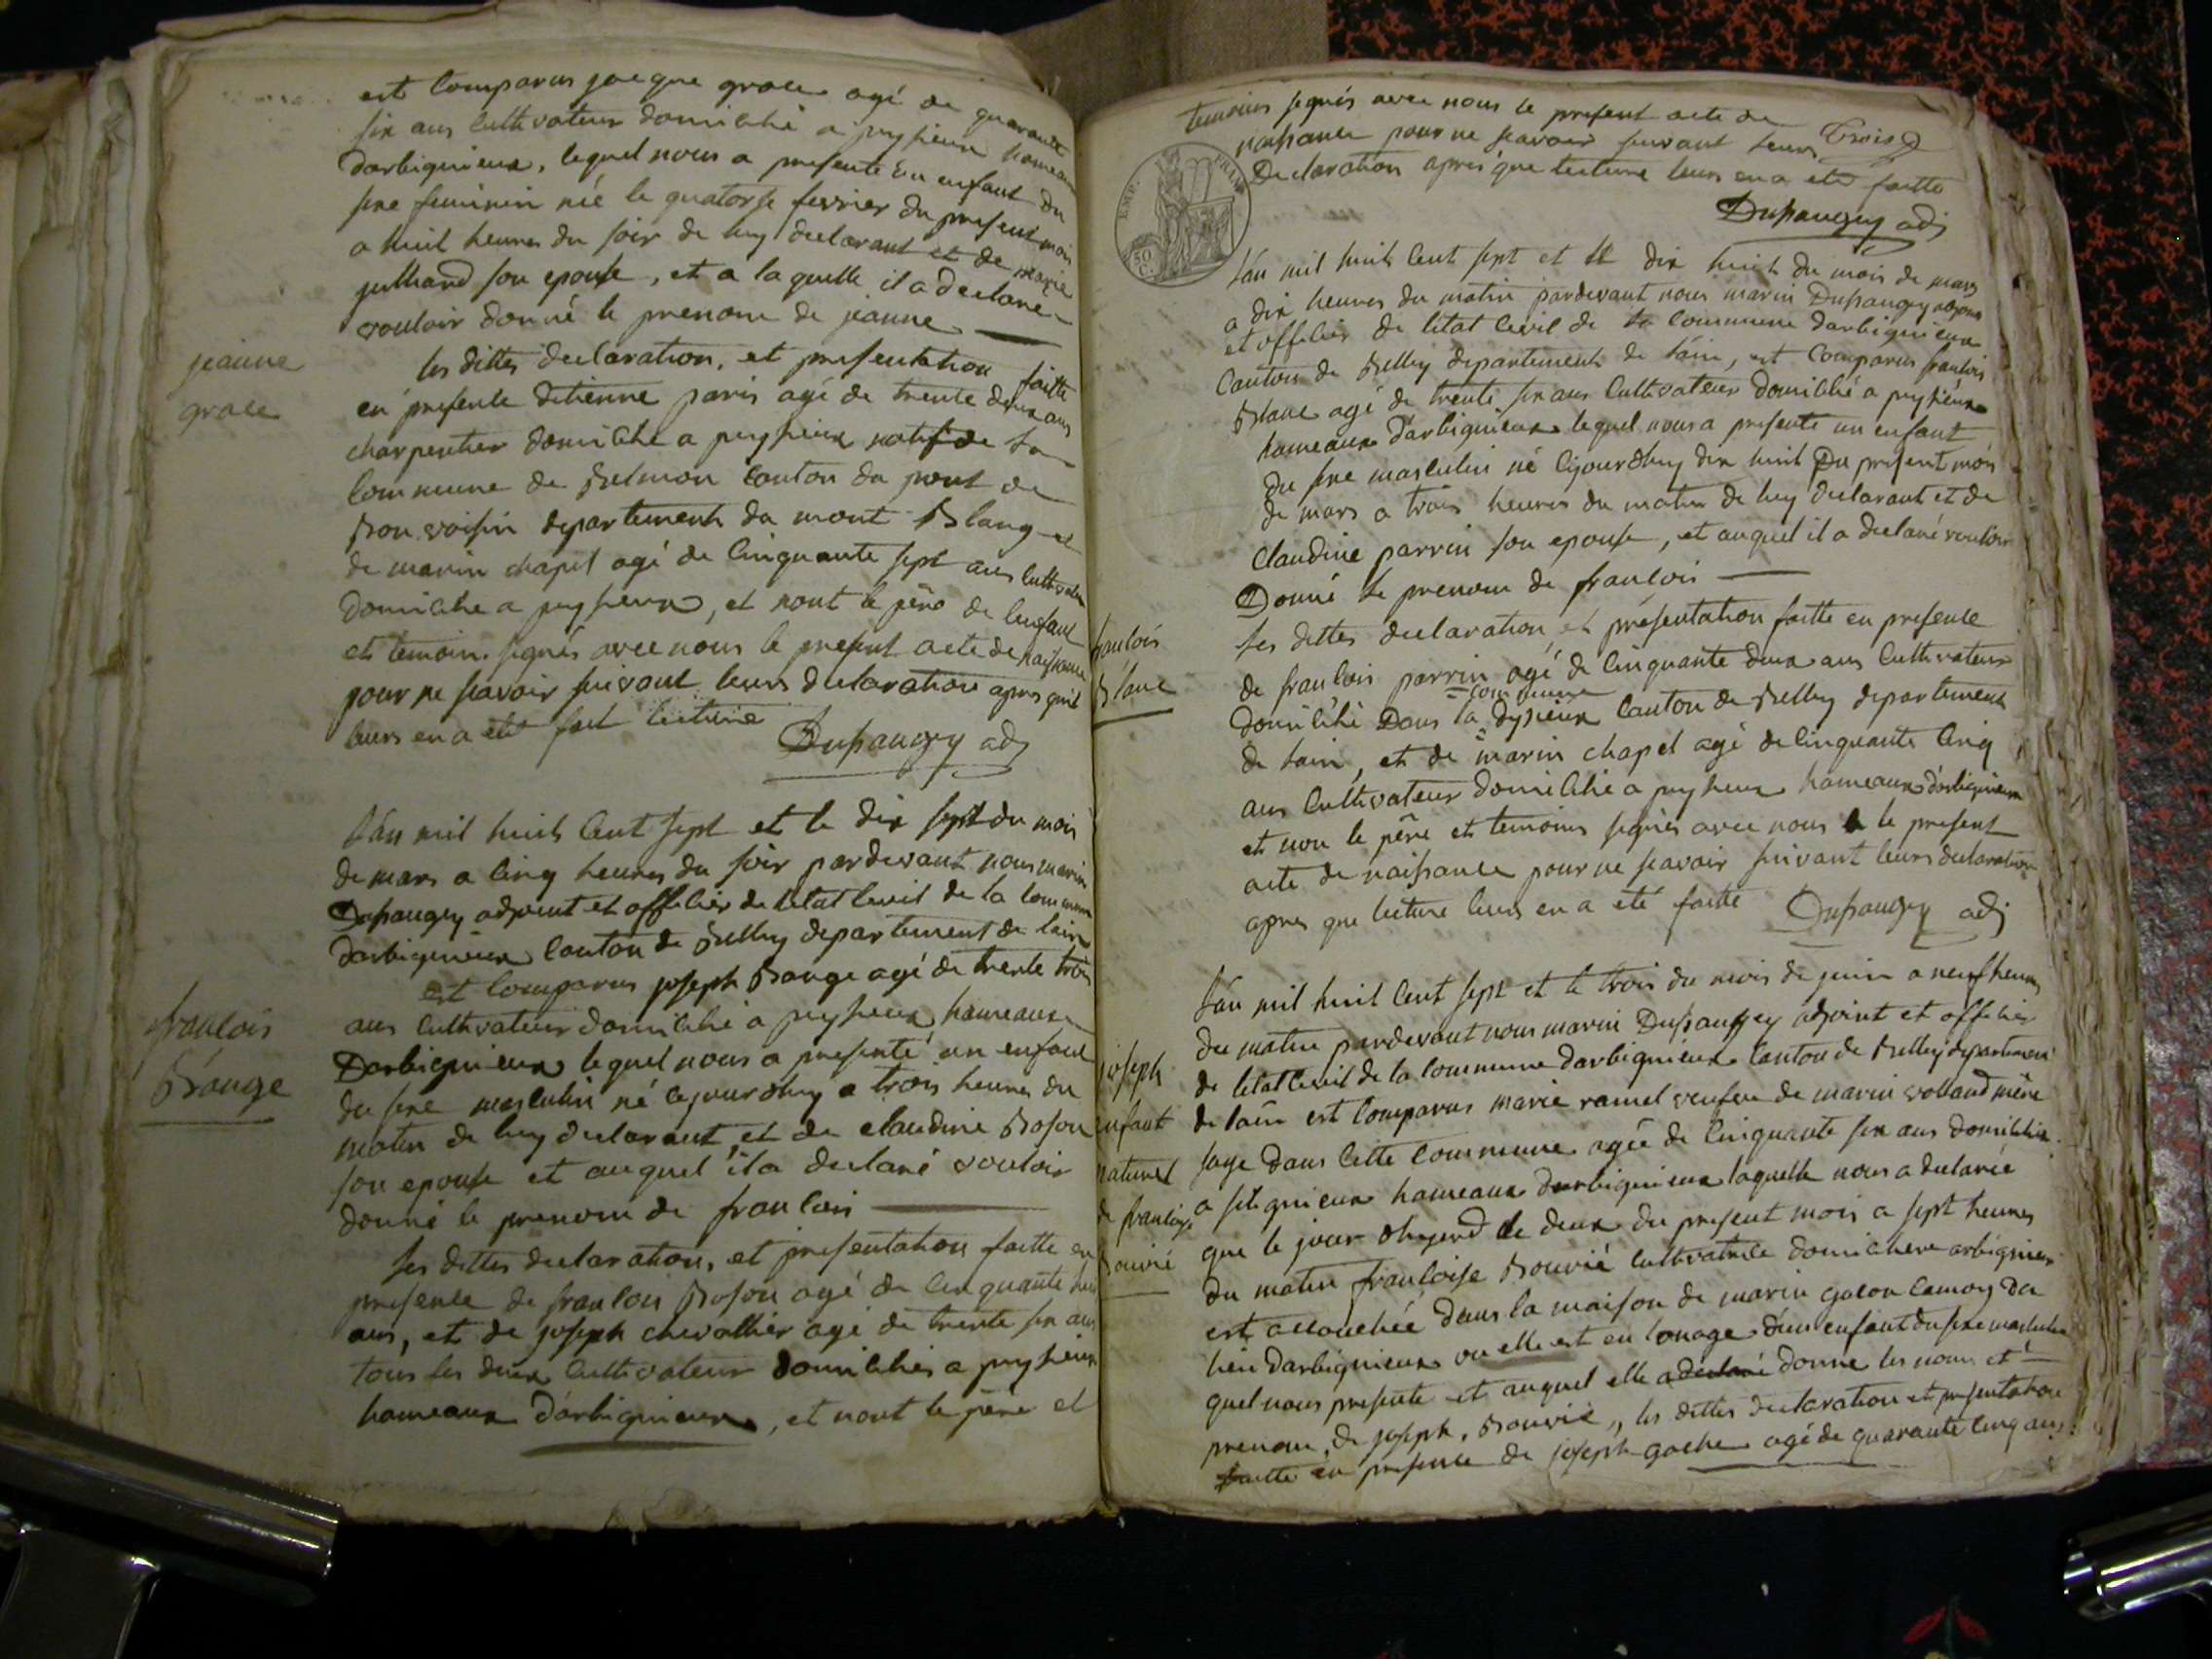 est comparus jacque grole agé de quarante
six ans cultivateur domicilié a peyzieux hameaux
darbignieux, lequel nous a presenté un enfant du
sexe feminin né le quatorse fevrier du present mois
a huit heures du soir de luy declarant et de marie
julliand son epouse, et a la quelle il a declaré
vouloir donné le prenom de jeanne
jeanne
grole
les dittes declaration, et presentation faitte
en presence detienne paris agé de trente deux ans
charpentier domicilié a peyzieux natif de la
commune de Belmon canton du pont de
Bonvoisin departement du mont Blanq et
de marin chapel agé de cinquante sept ans cultivateur
domicilié a peyzieux, et nont le père de lenfant
et temoin signés avec nous le present acte de naissance
pour ne scavoir suivant leurs declaration apres quil
leurs en a eté fait lecture
Dupaugey adj
Lán mil huit cent sept et le dix sept du mois
de mars a cinq heures du soir pardevant nous marin
Dupaugey adjoint et officier de létat civil de la commune
darbignieux canton de Belley departement de lain
est comparus joseph Bauge agé de trente trois
ans cultivateur domicilié a peyzieux hameaux
Darbignieux lequel nous a presenté un enfant
du sexe masculin né cejourdhuy a trois heures du
matin de luy declarant, et de claudine Boson
son epouse et auquel il a declaré vouloir
donné le prenom de francois
francois
Bauge
les dittes declaration, et presentation faitte en
presence de francois Boson agé de cinquante huit
ans, et de joseph chevallier agé de trente six ans
tous les deux cultivateur domiciliés a peyzieux
hameaux darbignieux, et nont le père et
temoins signés avec nous le present acte de
naissance pour ne scavoir suivant leurs
Trois
Declaration après que lecture leurs en a eté faitte
Dupaugey adj
EMP. FRAN
50 C.
Lán mil huit cent sept et le dix huit du mois de mars
a dix heures du matin pardevant nous marin Dupaugey adjoint
et officier de létat civil de la commune darbignieux
canton de Belley departement de láin, est comparus francois
Blanc agé de trente six ans cultivateur domicilié a peyzieux
hameaux darbignieux lequel nous a presenté un enfant
du sexe masculin né cejourdhuy dix huit Du present mois
de mars a trois heures du matin de luy declarant et de
claudine parrin son epouse, et auquel il a declaré vouloir
Donné le prenom de francois
francois
Blanc
les dittes declaration, et présentation faitte en presence
de francois parrin agé de cinquante deux ans cultivateur
domicilié Dans la commune dyzieux canton de Belley departement
de lain, et de marin chapel agé de cinquante cinq
ans cultivateur domicilié a peyzieux hameaux darbignieux
et non le père et temoins signés avec nous le present
acte de naissance pour ne scavoir suivant leurs declaration
apres que lecture leurs en a été faitte Dupaugey adj
Lán mil huit cent sept et le trois du mois de juin a neuf heures
du matin pardevant nous marin Dupaugey adjoint et officier
de létat civil de la commune darbignieux canton de Belley departement
de lain est comparus marie ramel veufve de marin volland mère
sage dans cette commune agée de cinquante six ans domiciliée
a silignieux hameaux darbignieux laquelle nous a declarée
que le jour dhyerd le deux du present mois a sept heures
du matin francoise Bouvié cultivatrice domiciliere arbignieux
est accouchée dans la maison de marin gacon camoz du
lieu darbignieux ou elle est en louage d'un enfant du sexe masculin
quel nous presente et auquel elle a declaré donne les nom et
prenom, de joseph, Bouvié, les dittes declaration et presentation
faitte en presence de joseph gache agé de quarante cinq ans
joseph
enfant
naturel
de francoise
Bouvié